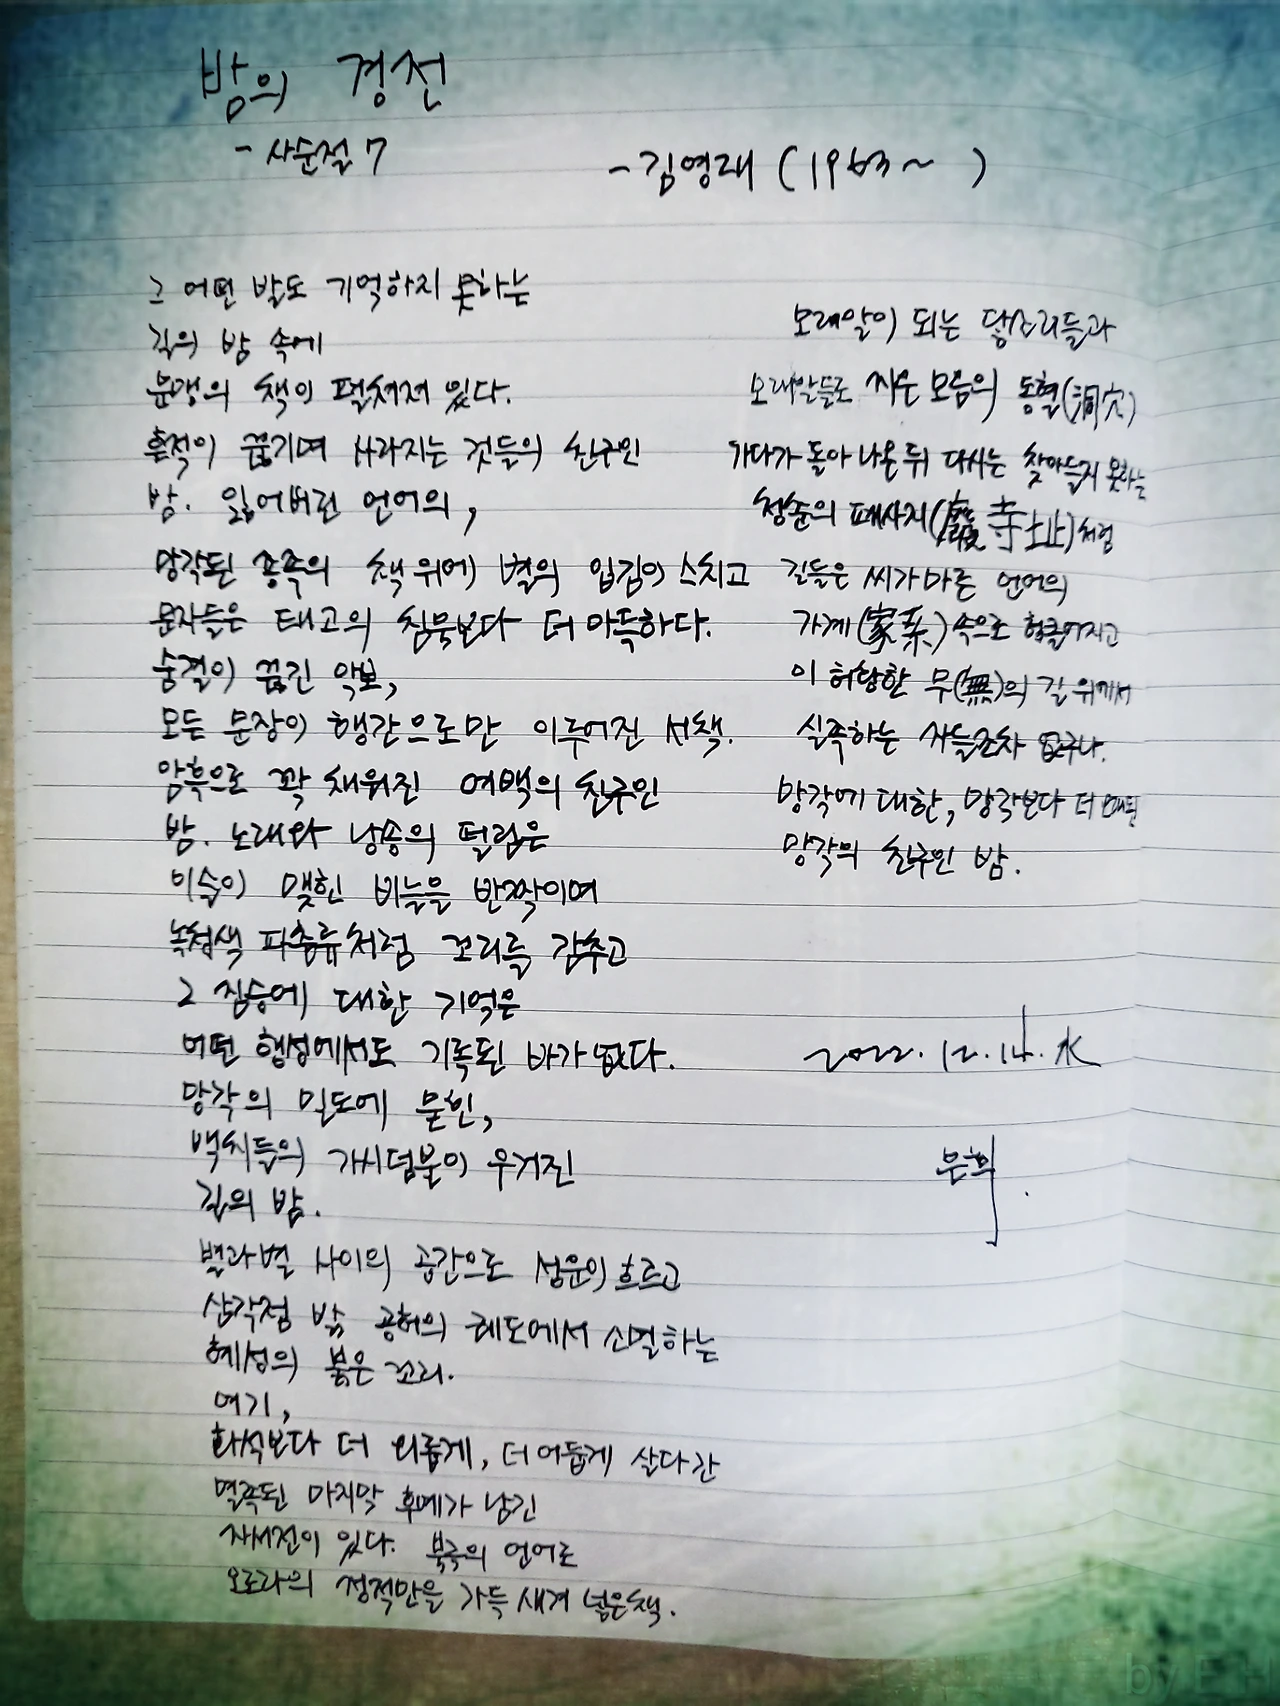 밤의 경전
- 사순절 7
- 김영래 (1963~ )
그 어떤 발도 기억하지 못하는
길의 밤 속에
문맹의 책이 펼쳐져 있다.
흔적이 끊기며 사라지는 것들의 친구인
밤. 잃어버린 언어의,
망각된 종족의 책 위에 별의 입김이 스치고
문자들은 태고의 침묵보다 더 아득하다.
숨결이 끊긴 악보,
모든 문장이 행간으로만 이루어진 서책.
암흑으로 꽉 채워진 여백의 친구인
밤. 노래와 낭송의 떨림은
이슬이 맺힌 비늘을 반짝이며
녹청색 파충류처럼 꼬리를 감추고
그 짐승에 대한 기억은
어떤 행성에서도 기록된 바가 없다.
망각의 밀도에 묻힌,
백치들의 가시덤불이 우거진
길의 밤.
별과 별 사이의 공간으로 성운이 흐르고
삼각점 밖 공허의 궤도에서 소멸하는
혜성의 붉은 꼬리.
여기,
화석보다 더 외롭게, 더 어둡게 살다 간
멸족된 마지막 후예가 남긴
자서전이 있다. 북극의 언어로
오로라의 정적만을 가득 새겨 넣은 책.
모래알이 되는 닿소리들과
모래알들로 지은 모음의 동혈(洞穴)
가다가 돌아 나온 뒤 다시는 찾아들지 못하는
청춘의 폐사지(廢寺址)처럼
길들은 씨가 마른 언어의
가계(家系) 속으로 헝클어지고
이 허랑한 무(無)의 길 위에서
실족하는 자들조차 없구나.
망각에 대한, 망각보다 더 오래된
망각의 친구인 밤.
2022. 12. 14. 水
은희.
by E H